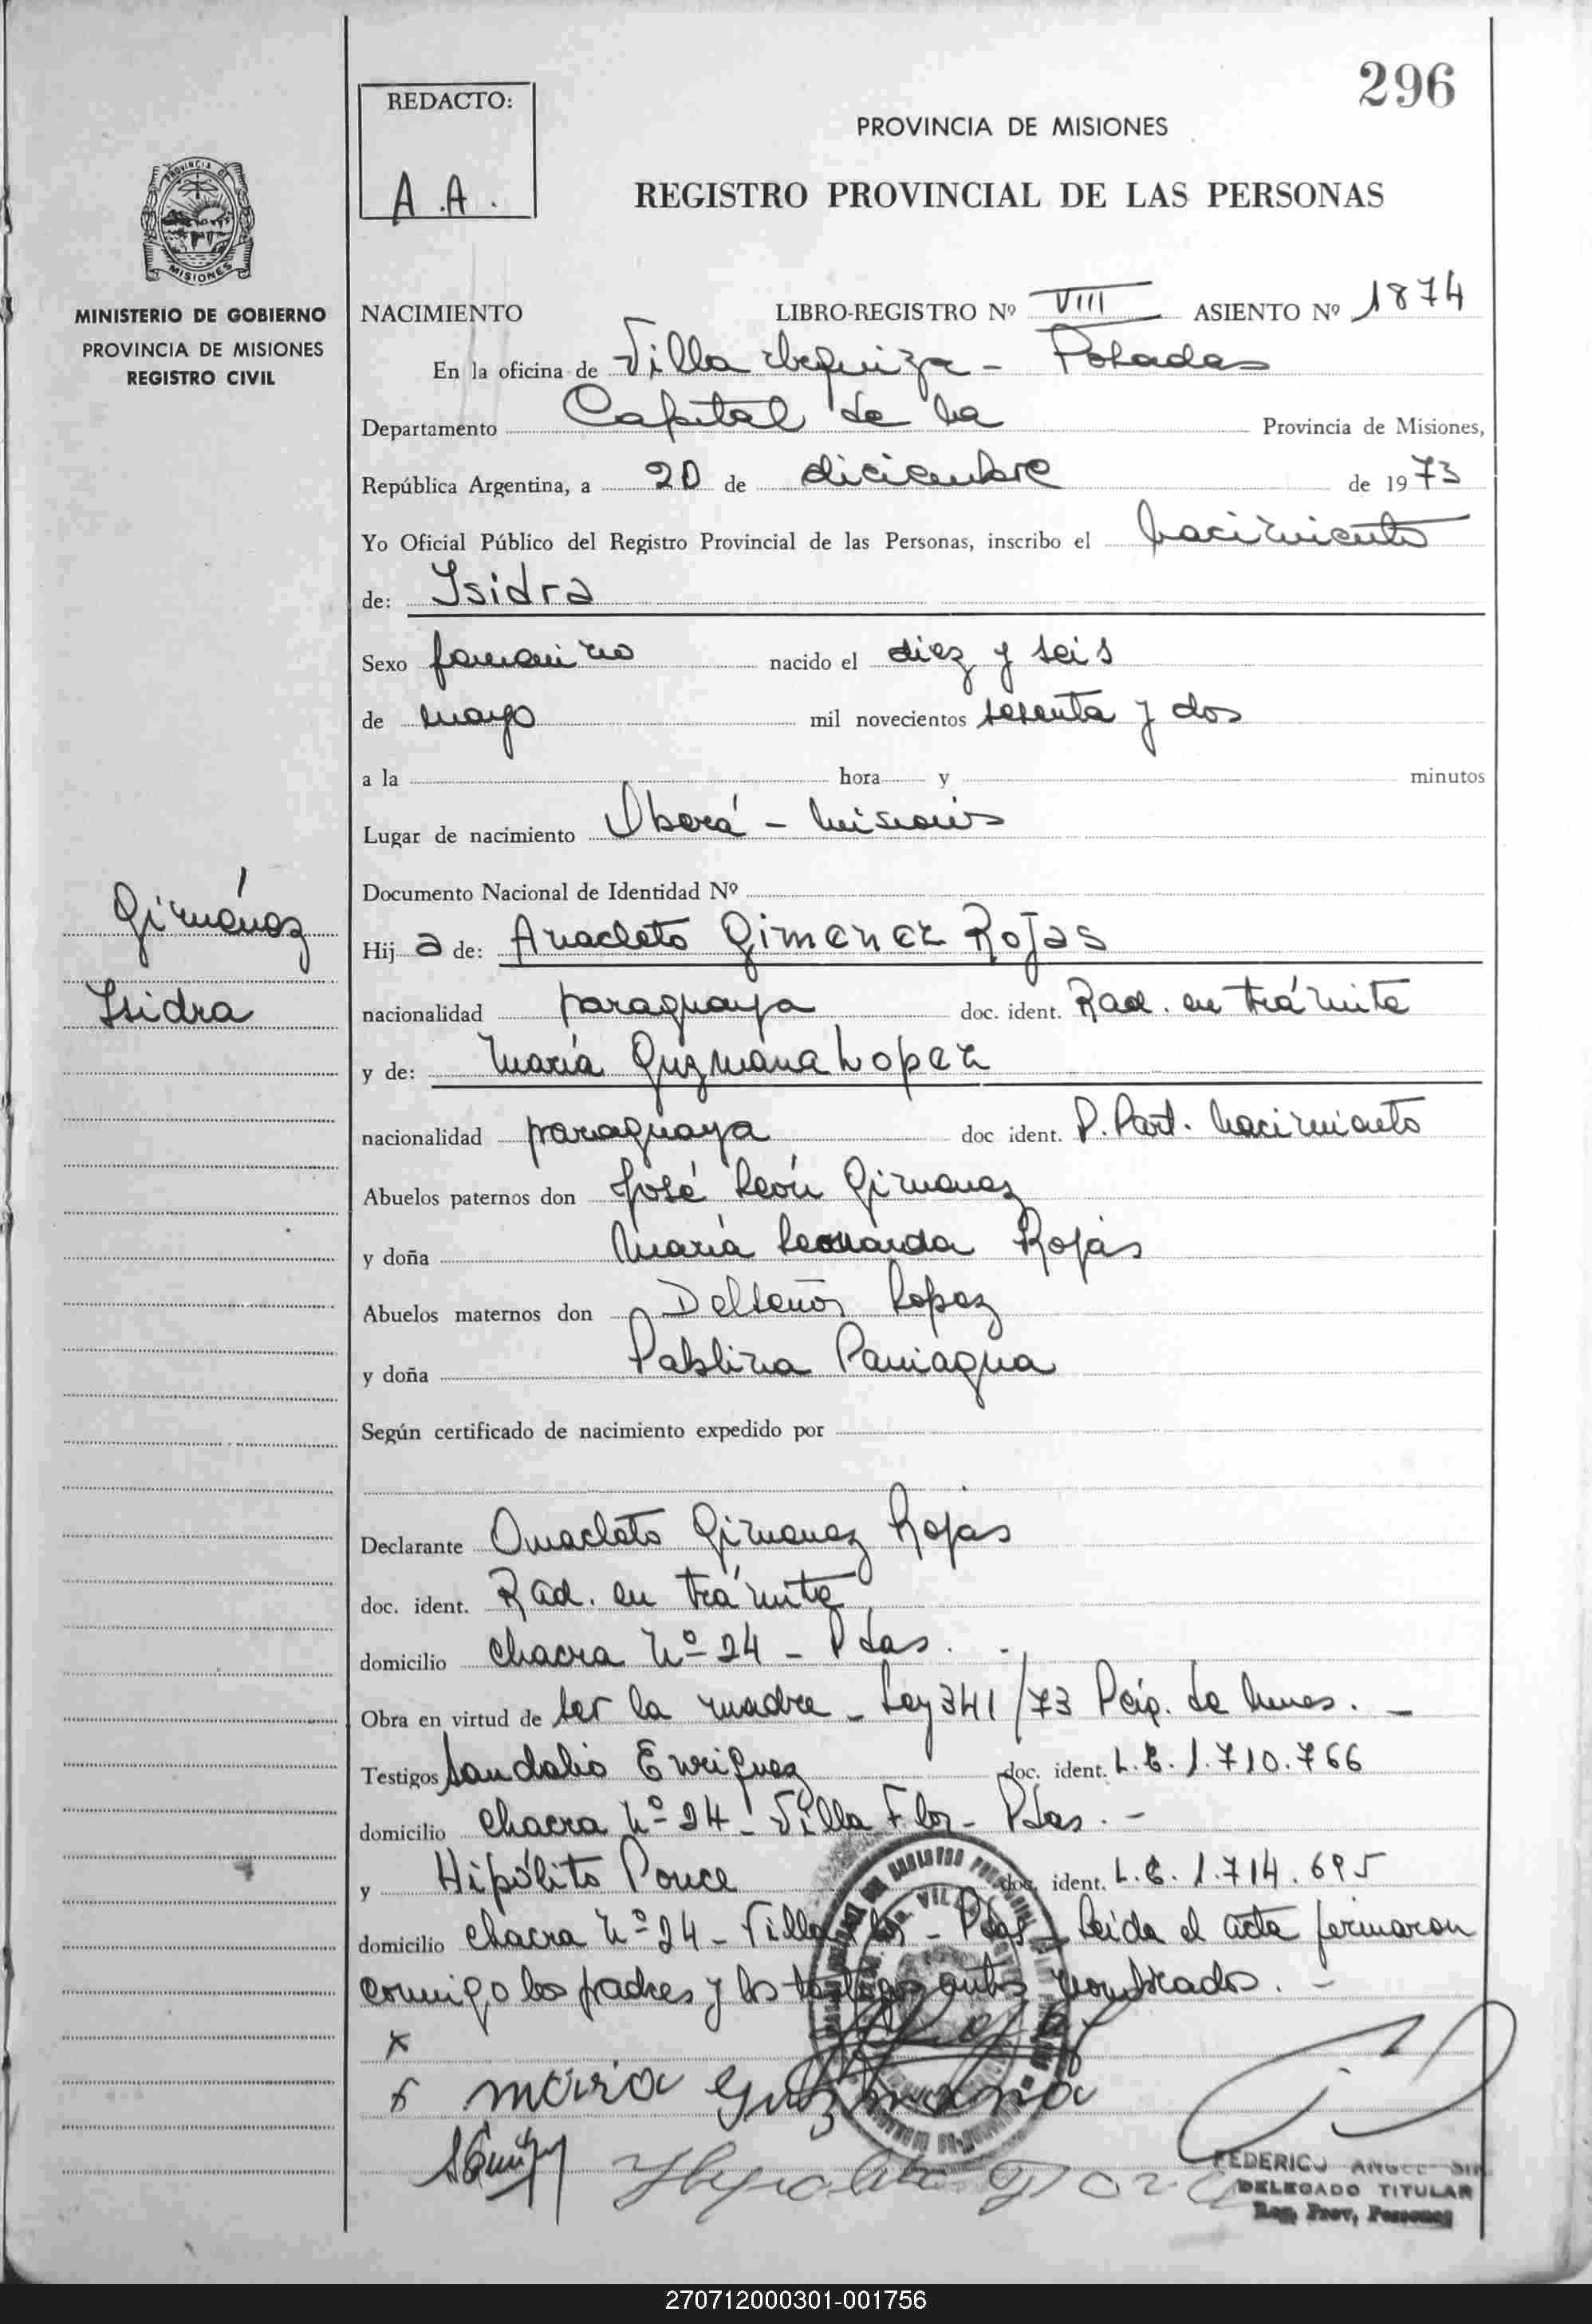 296
REDACTO:
A.A.
PROVINCIA DE MISIONES
REGISTRO PROVINCIAL DE LAS PERSONAS
PROVINCIA DE
MISIONES
MINISTERIO DE GOBIERNO
PROVINCIA DE MISIONES
REGISTRO CIVIL
NACIMIENTO LIBRO-REGISTRO Nº VIII ASIENTO Nº 1874
En la oficina de Villa Urquiza - Posadas
Departamento Capital de la Provincia de Misiones,
República Argentina, a 20 de diciembre de 1973
Yo Oficial Público del Registro Provincial de las Personas, inscribo el nacimiento
de: Isidra
Sexo femenino nacido el diez y seis
de mayo mil novecientos sesenta y dos
a la hora y minutos
Lugar de nacimiento Oberá - Misiones
Documento Nacional de Identidad Nº
Giménez
Isidra
Hij a de: Anacleto Gimenez Rojas
nacionalidad paraguaya doc. ident. Rad. en trámite
y de: María Guzmana Lopez
nacionalidad paraguaya doc ident. P. Part. Nacimiento
Abuelos paternos don José León Gimenez
y doña María Leonarda Rojas
Abuelos maternos don Delseñor Lopez
y doña Pablina Paniagua
Según certificado de nacimiento expedido por
Declarante Anacleto Gimenez Rojas
doc. ident. Rad. en trámite
domicilio Chacra Nº 24 - Pdas.
Obra en virtud de ser la madre - Ley 341/73 de -
Testigos Sandalio Enriquez doc. ident. L.E. 1.710.766
domicilio Chacra Nº 24 - Villa Flor - Pdas. -
y Hipólito Ponce doc. ident. L.E. 1.714.695
domicilio Chacra Nº 24 - Villa Flor - Pdas - Leida el acta firmaron
conmigo los padres y los testigos antes nombrados. -
x
x maria guzmana
FEDERICO
DELEGADO TITULAR
Reg. Prov. Personas
270712000301-001756